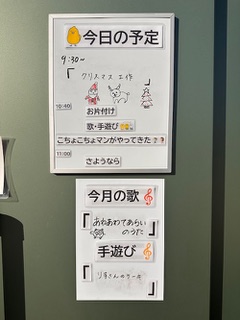 今日の予定
9:30~
「クリスマス工作」
10:40
お片付け
歌・手遊び
こちょこちょマンがやってきた
11:00
さようなら
今月の歌
「あわあわてあらいのうた」
手遊び
「　　さんのケーキ」